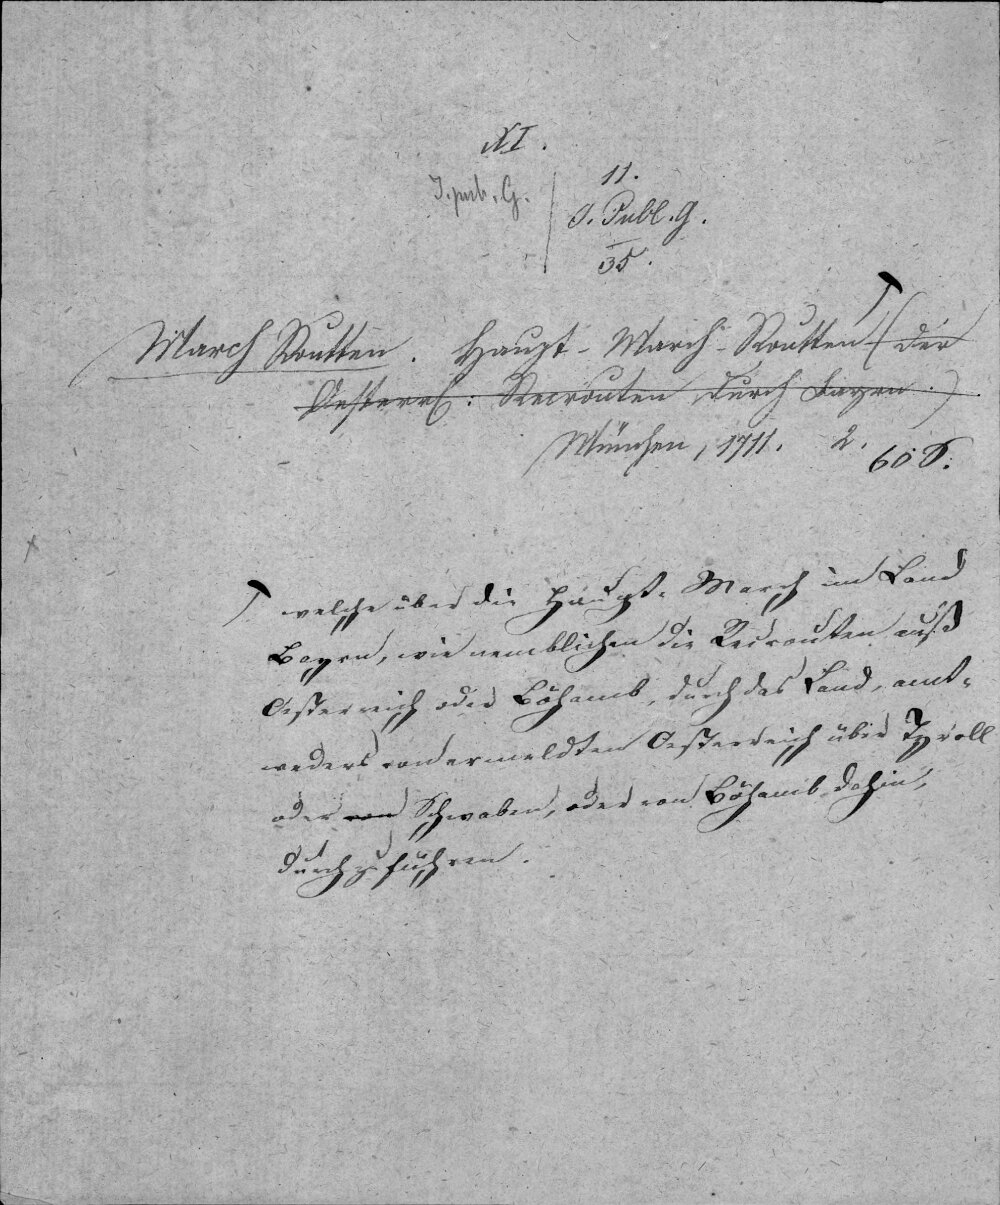 XI.
11.
J. pub. G.
J. Publ. G.
35.
March Routten. Haupt-March-Routten (der
Oesterr: Recrouten durch Bayrn.)
München, 1711. 2.
60 S.
welche über die Haupt-March im Land
Bayrn, wie nemblichen die Recrouten auß
Oesterreich oder Böhamb, durch das Land, ent-
weders von ermeldten Oesterreich über Tyroll
oder von Schwaben, oder von Böhamb dahin,
durchzuführen.